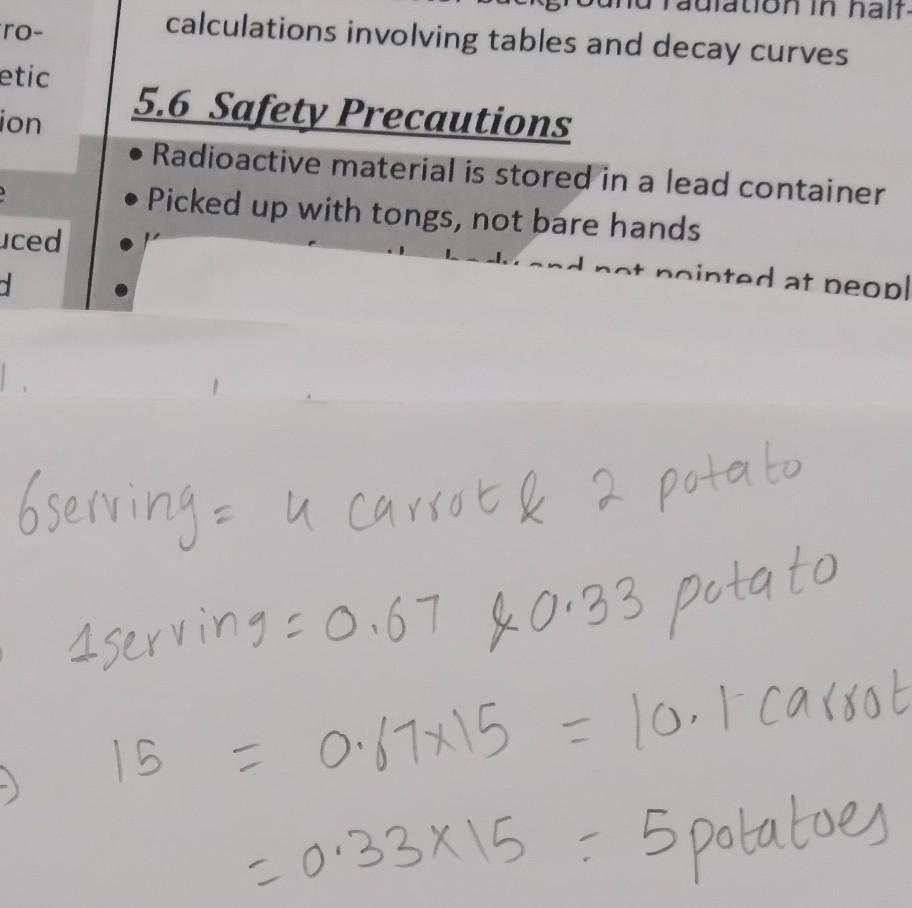 background radiation in half-
calculations involving tables and decay curves
5.6 Safety Precautions
• Radioactive material is stored in a lead container
• Picked up with tongs, not bare hands
• body and not pointed at peopl
•
ro-
etic
ion
e
uced
d
6serving = 4 carrot & 2 potato
1serving = 0.67 & 0.33 potato
15 = 0.67x15 = 10.1 carrot
= 0.33x15 = 5 potatoes